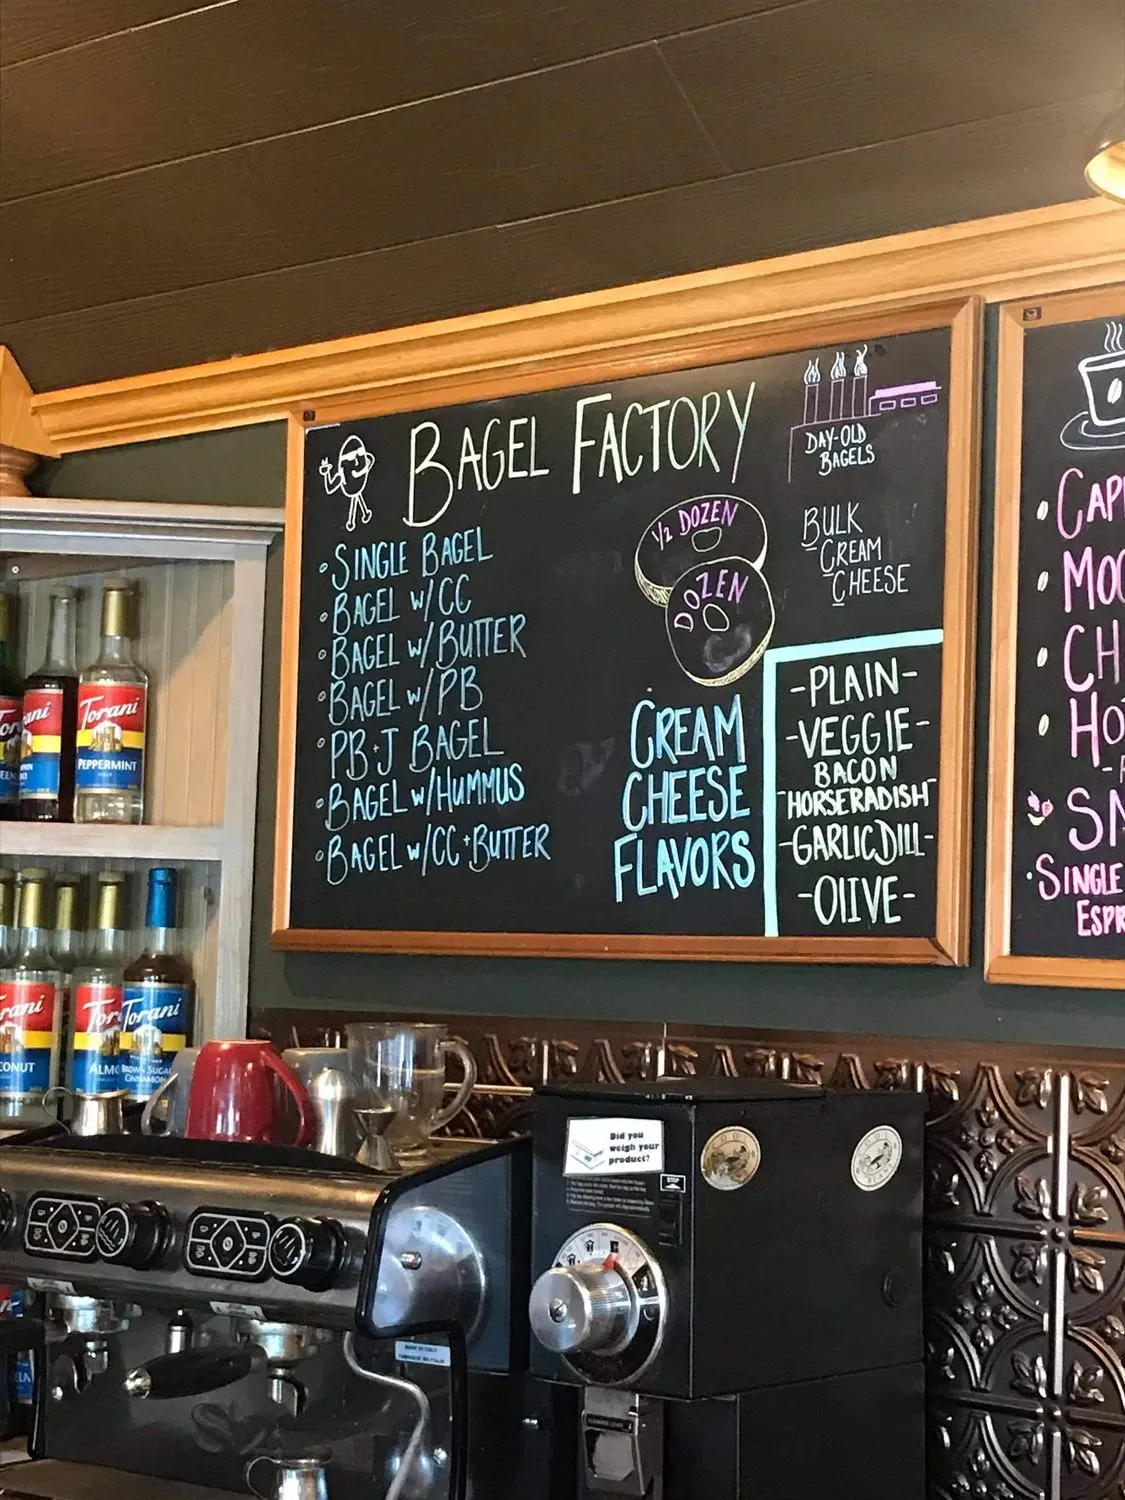 BAGEL FACTORY
◦ SINGLE BAGEL
◦ BAGEL w/CC
◦ BAGEL w/BUTTER
◦ BAGEL w/PB
◦ PB+J BAGEL
◦ BAGEL w/HUMMUS
◦ BAGEL w/CC+BUTTER
1/2 DOZEN
DOZEN
DAY-OLD
BAGELS
BULK
CREAM
CHEESE
CREAM
CHEESE
FLAVORS
-PLAIN-
-VEGGIE-
BACON
-HORSERADISH-
-GARLIC DILL-
-OLIVE-
SINGLE
Torani
PEPPERMINT
Torani
BROWN SUGAR
CINNAMON
Did you
weigh your
product?
STOP
MADE IN ITALY